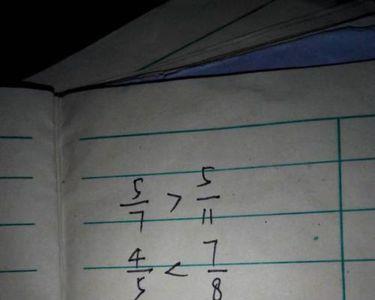 5/7 > 5/11
4/5 < 7/8